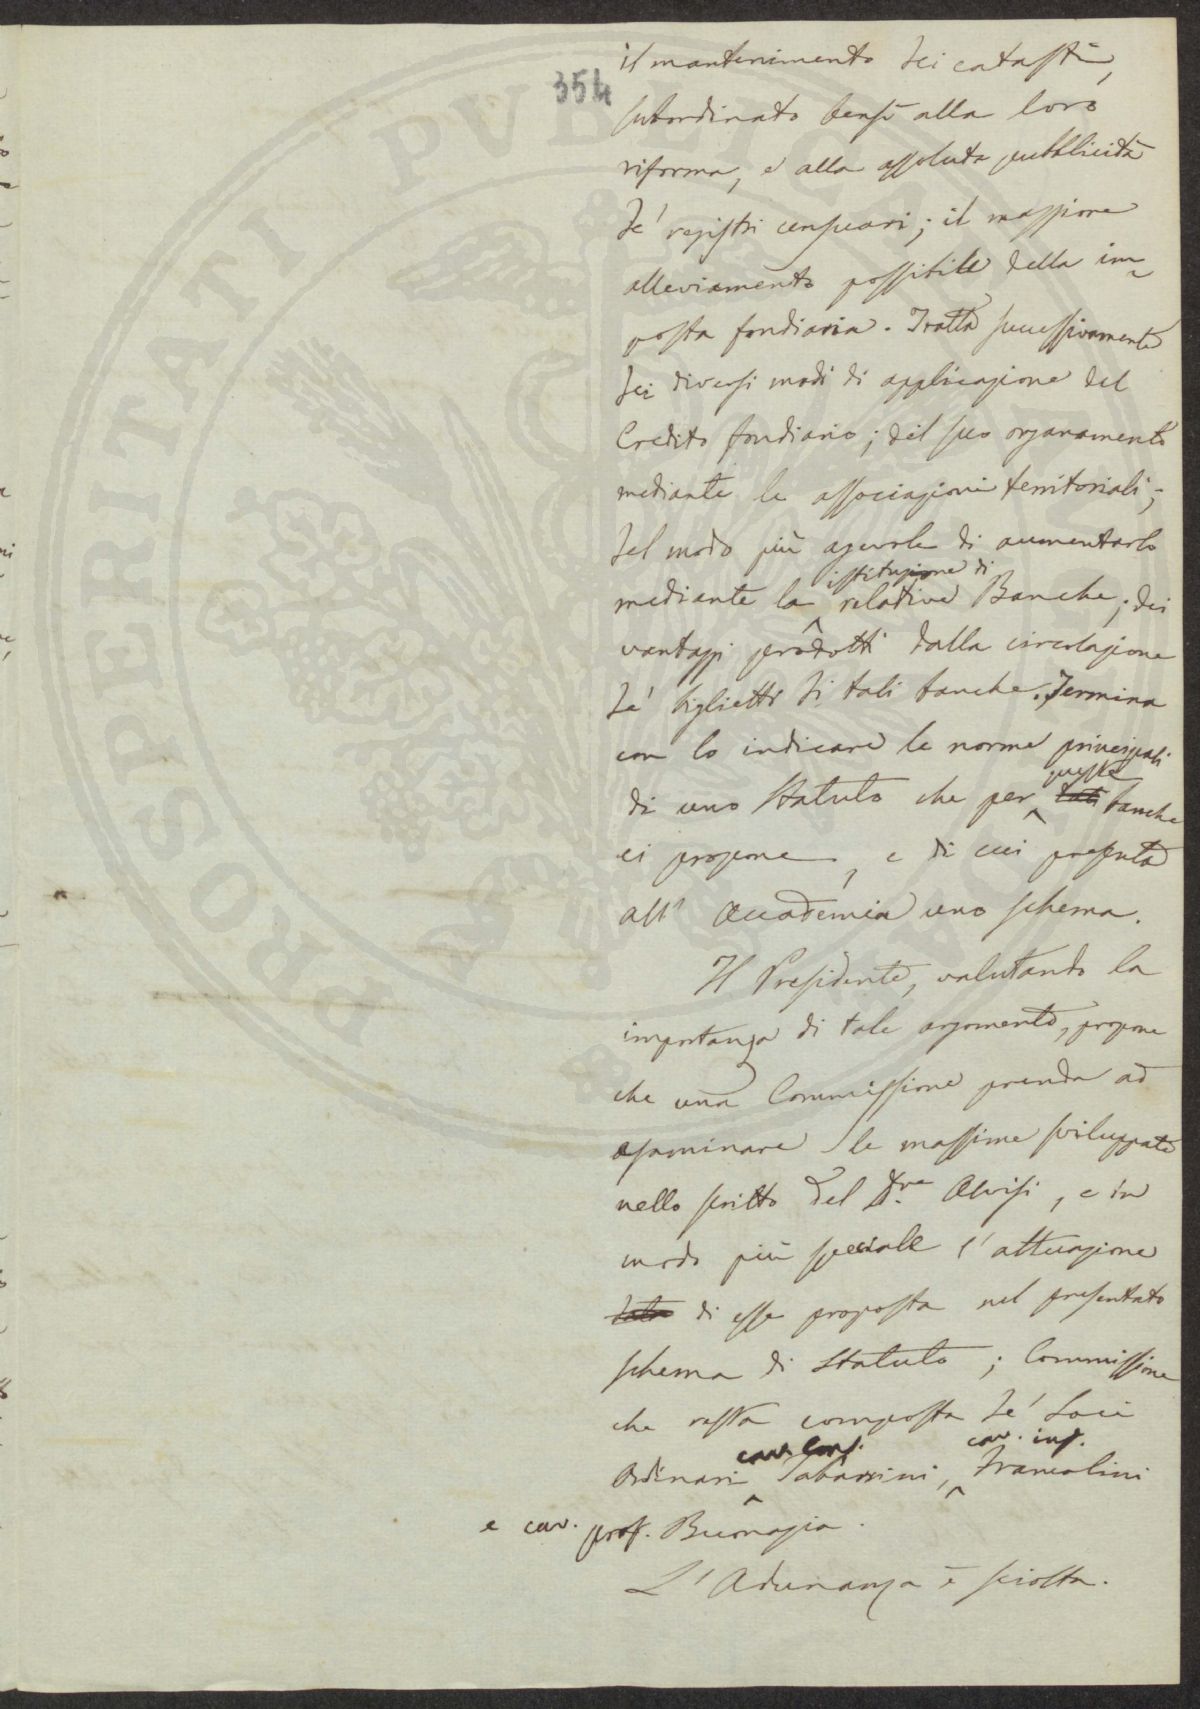 354
il mantenimento dei catasti,
subordinato bensì alla loro
riforma, e alla assoluta pubblicità
de' registri censuari; il maggiore
alleviamento possibile della im-
posta fondiaria. Tratta successivamente
dei diversi modi di applicazione del
Credito fondiario; del suo organamento
mediante le associazioni territoriali;
del modo più agevole di aumentarlo
istituzione di
mediante la relative Banche; dei
vantaggi prodotti dalla circolazione
de' biglietti di tali banche. Termina
con lo indicare le norme principali
queste
di uno Statuto che per tali banche
ei propone, e di cui presenta
all' Accademia uno schema.
Il Presidente, valutando la
importanza di tale argomento, propone
che una Commissione prenda ad
esaminare le massime sviluppate
nello scritto del Dre Alvisi, e in
modo più speciale l'attuazione
di esse proposta nel presentato
schema di Statuto; Commissione
che resta composta de' Soci
cav. Cons. cav. ing.
Ordinari Tabarrini, Francolini
e cav. prof. Buonazia.
L'Adunanza è sciolta.
PROSPERITATI PVBLICAE